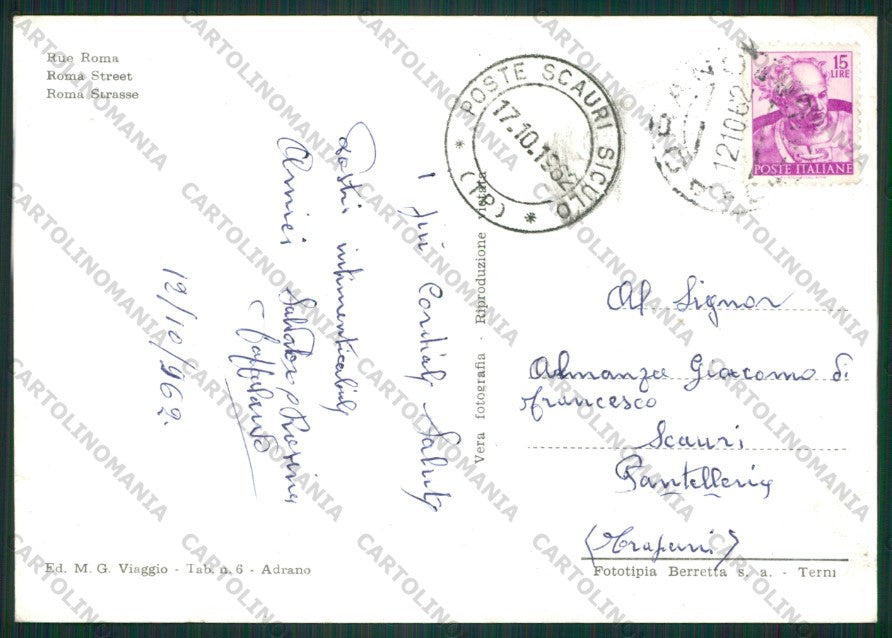 Rue Roma
Roma Street
Roma Strasse
POSTE SCAURI SICULO
17.10.1962
* (TP) *
12 10 62
15
LIRE
POSTE ITALIANE
I più Cordiali Saluti
Vostri indimenticabili
Amici Salvatore e Rosina
12/10/962.
Vera fotografia - Riproduzione vietata
Al Signor
Almanza Giacomo di
Francesco
Scauri
Pantelleria
(Trapani)
Ed. M. G. Viaggio - Tab. n. 6 - Adrano
Fototipia Berretta s. a. - Terni
CARTOLINOMANIA